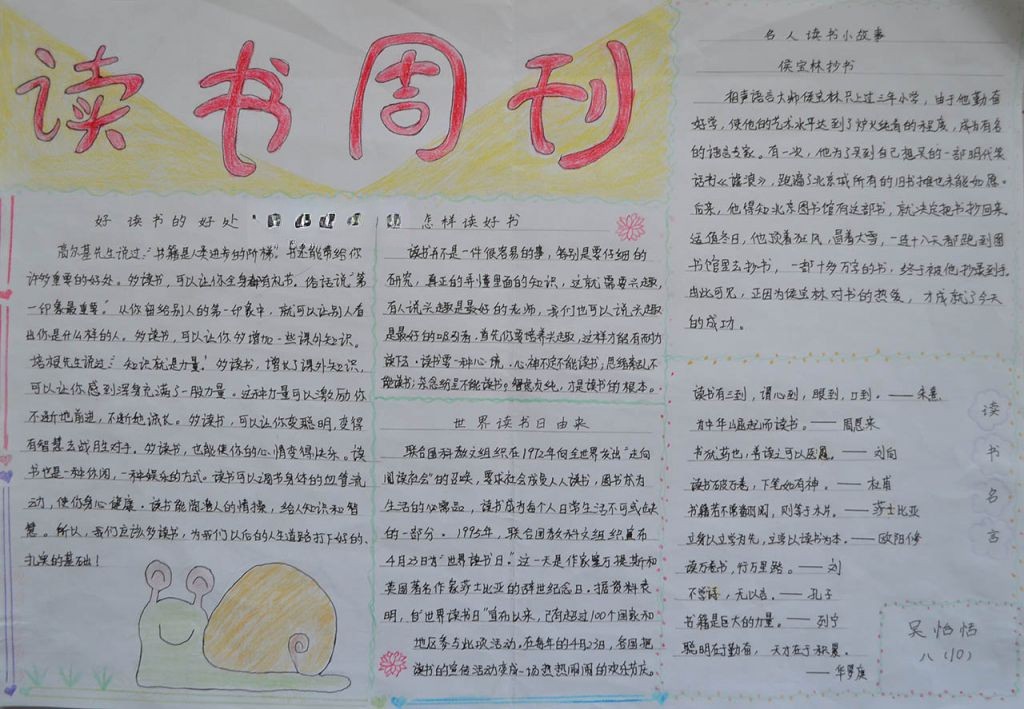 读书周刊
好读书的好处
高尔基先生说过:"书籍是人类进步的阶梯"。书还能带给你
许多重要的好处。多读书,可以让你全身都有礼节。俗话说"第
一印象最重要。"从你留给别人的第一印象中,就可以让别人看
出你是什么样的人。多读书,可以让你多增加一些课外知识。
培根先生说过:"知识就是力量"多读书,增长了课外知识,
可以让你感到浑身充满了一股力量。这种力量可以激励你
不断地前进,不断地成长。多读书,可以让你变聪明,变得
有智慧去战胜对手。多读书,也能使你的心情变得快乐。读
书也是一种休闲,一种娱乐的方式。读书可以调节身体的血管流
动,使你身心健康。读书能陶冶人的情操,给人知识和智
慧。所以,我们应该多读书,为我们以后的人生道路打下好的、
扎实的基础!
怎样读好书
读书并不是一件很容易的事,特别是要仔细的
研究,真正的弄懂里面的知识,这就需要兴趣,
有人说兴趣是最好的老师,我们也可以说兴趣
是最好的吸引者,首先你要培养兴趣,这样才能有耐力
读下去。读书要一种心境,心神不定不能读书,思绪紊乱不
能读书;杂念纷呈不能读书。智慧贞纯,才是读书的根本。
世界读书日由来
联合国科教文组织在1972年向全世界发出"走向
阅读社会"的召唤,要求社会成员人人读书,图书成为
生活的必需品,读书成为每个人日常生活不可或缺
的一部分。1995年,联合国教科文组织宣布
4月23日为"世界读书日。"这一天是作家塞万提斯和
英国著名作家莎士比亚的辞世纪念日。据资料表
明,自"世界读书日"宣布以来,已有超过100个国家和
地区参与此项活动。在每年的4月23日,各国把
读书的宣传活动变成一场热热闹闹的欢乐节庆。
名人读书小故事
侯宝林抄书
相声语言大师侯宝林只上过三年小学,由于他勤奋
好学,使他的艺术水平达到了炉火纯青的程度,成为有名
的语言专家。有一次,他为了买到自己想买的一部明代笑
话书《谑浪》,跑遍了北京城所有的旧书摊也未能如愿。
后来,他得知北京图书馆有这部书,就决定把书抄回来。
适值冬日,他顶着狂风,冒着大雪,一连十八天都跑到图
书馆里去抄书,一部十多万字的书,终于被他抄录到手。
由此可见,正因为侯宝林对书的热爱,才成就了今天
的成功。
读书有三到,谓心到,眼到,口到。——朱熹
为中华之崛起而读书。——周恩来
书犹药也,善读之可以医愚。——刘向
读书破万卷,下笔如有神。——杜甫
书籍若不常翻阅,则等于木片。——莎士比亚
立身以立学为先,立学以读书为本。——欧阳修
读万卷书,行万里路。——刘
不学诗,无以言。——孔子
书籍是巨大的力量。——列宁
聪明在于勤奋,天才在于积累。
——华罗庚
读
书
名
言
吴怡恬
八(10)